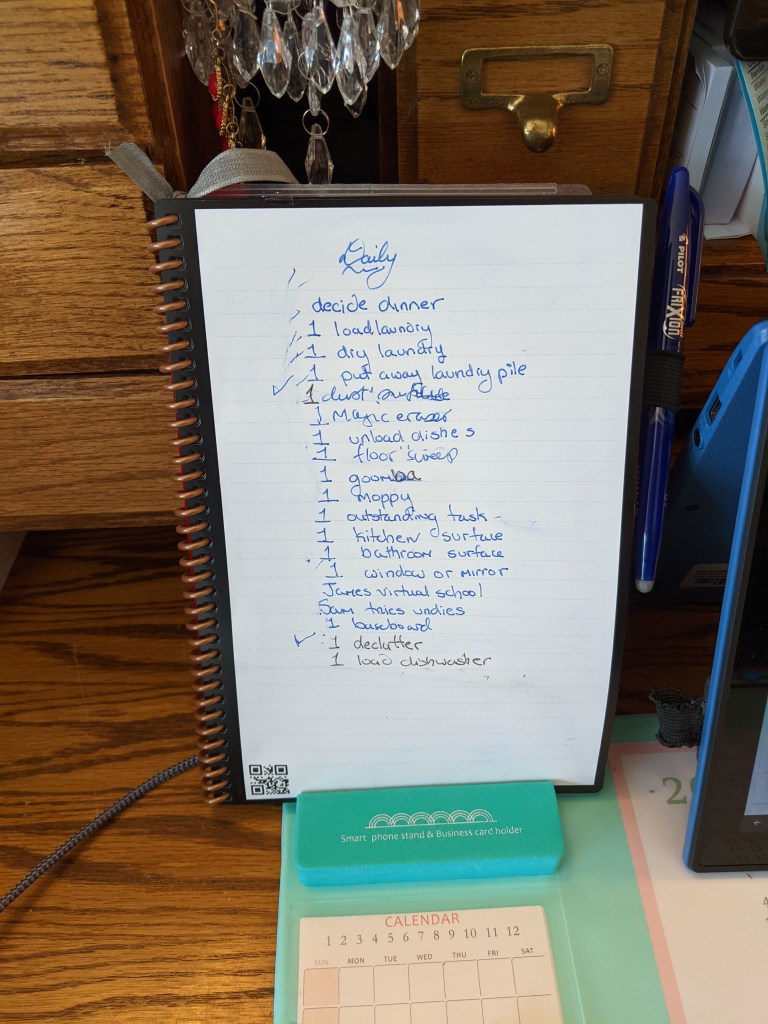 Daily
decide dinner
1 load laundry
1 dry laundry
1 put away laundry pile
1 dust surface
1 Magic eraser
1 unload dishes
1 floor sweep
1 goomba
1 moppy
1 outstanding task -
1 kitchen surface
1 bathroom surface
1 window or mirror
James virtual school
Sam tries undies
1 baseboard
1 declutter
1 load dishwasher
PILOT
FRIXION
Smart phone stand & Business card holder
CALENDAR
1 2 3 4 5 6 7 8 9 10 11 12
SUN MON TUE WED THU FRI SAT